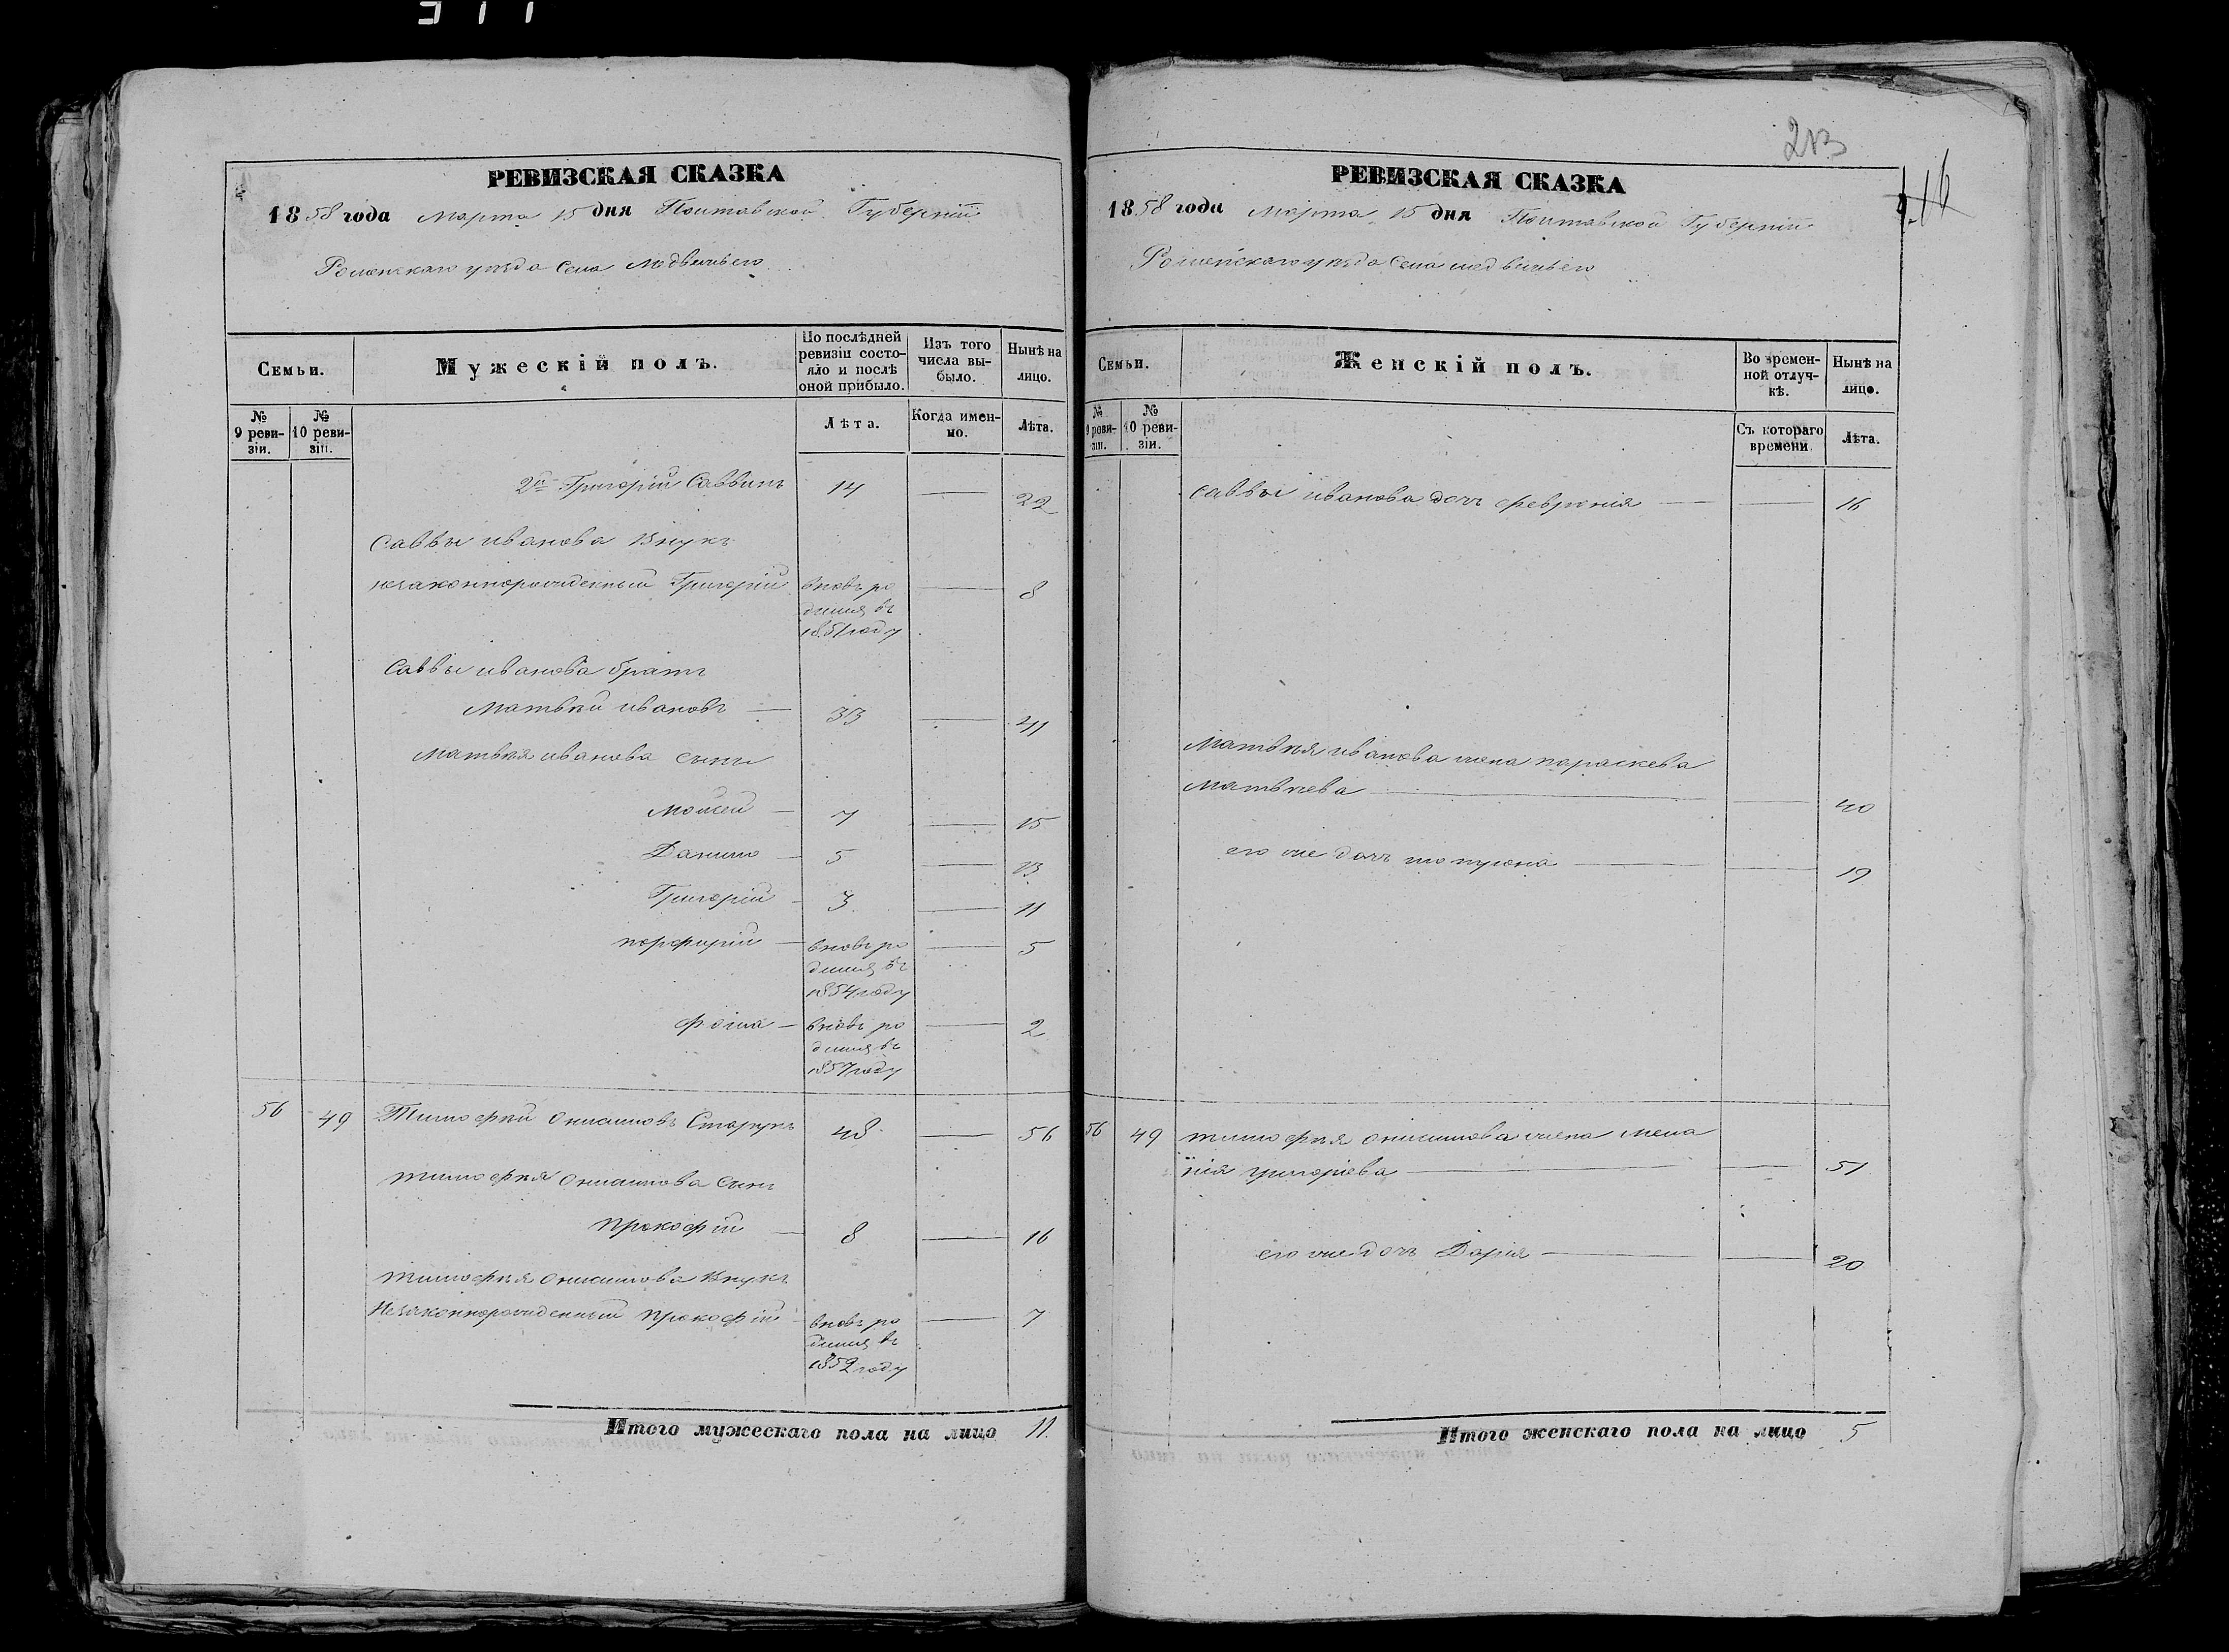 РЕВИЗСКАЯ СКАЗКА
1858 года Марта 15 дня Полтавской Губерніи
Роменскаго уѣзда Села Медвежьего
Семьи.
Мужескій полъ.
По послѣдней ревизіи состояло и послѣ оной прибыло.
Изъ того числа выбыло.
Нынѣ на лицо.
№ 9 ревизіи.
№ 10 ревизіи.
Лѣта.
Когда именно.
Лѣта.
2й Григорій Саввинъ 14 — 22
Саввы иванова Внукъ
незаконнорожденный Григорій вновь ро — 8
дился въ
1851 году
Саввы иванова братъ
Матвѣй ивановъ — 33 — 41
Матвѣя иванова сыны
Мойсей — 7 — 15
Данило — 5 — 13
Григорій — 3 — 11
порфирій — вновь ро — 5
дился въ
1854 году
фома — вновь ро — 2
дился въ
1857 году
56 49 Тимофѣй Онисимовъ Старухъ 48 — 56
тимофѣя Онисимова Сынъ
Прокофій — 8 — 16
тимофѣя Онисимова Внукъ
Незаконнорожденный Прокофій вновь ро — 7
дился въ
1852 году
Итого мужескаго пола на лицо 11.
213
РЕВИЗСКАЯ СКАЗКА
1858 года Марта 15 дня Полтавской Губерніи
Роменскаго уѣзда Села медвежьего
Семьи.
Женскій полъ.
Во временной отлучкѣ.
Нынѣ на лицо.
№ 9 ревизіи.
№ 10 ревизіи.
Съ котораго времени
Лѣта.
Саввы иванова дочь февронія — — 16
Матвѣя иванова жена параскева
Матвѣева — — 40
его же дочь — — 19
56 49 тимофѣя Онисимова жена Мела
нія григоріева — — 51
его же дочь Дарія — — 20
Итого женскаго пола на лицо 5